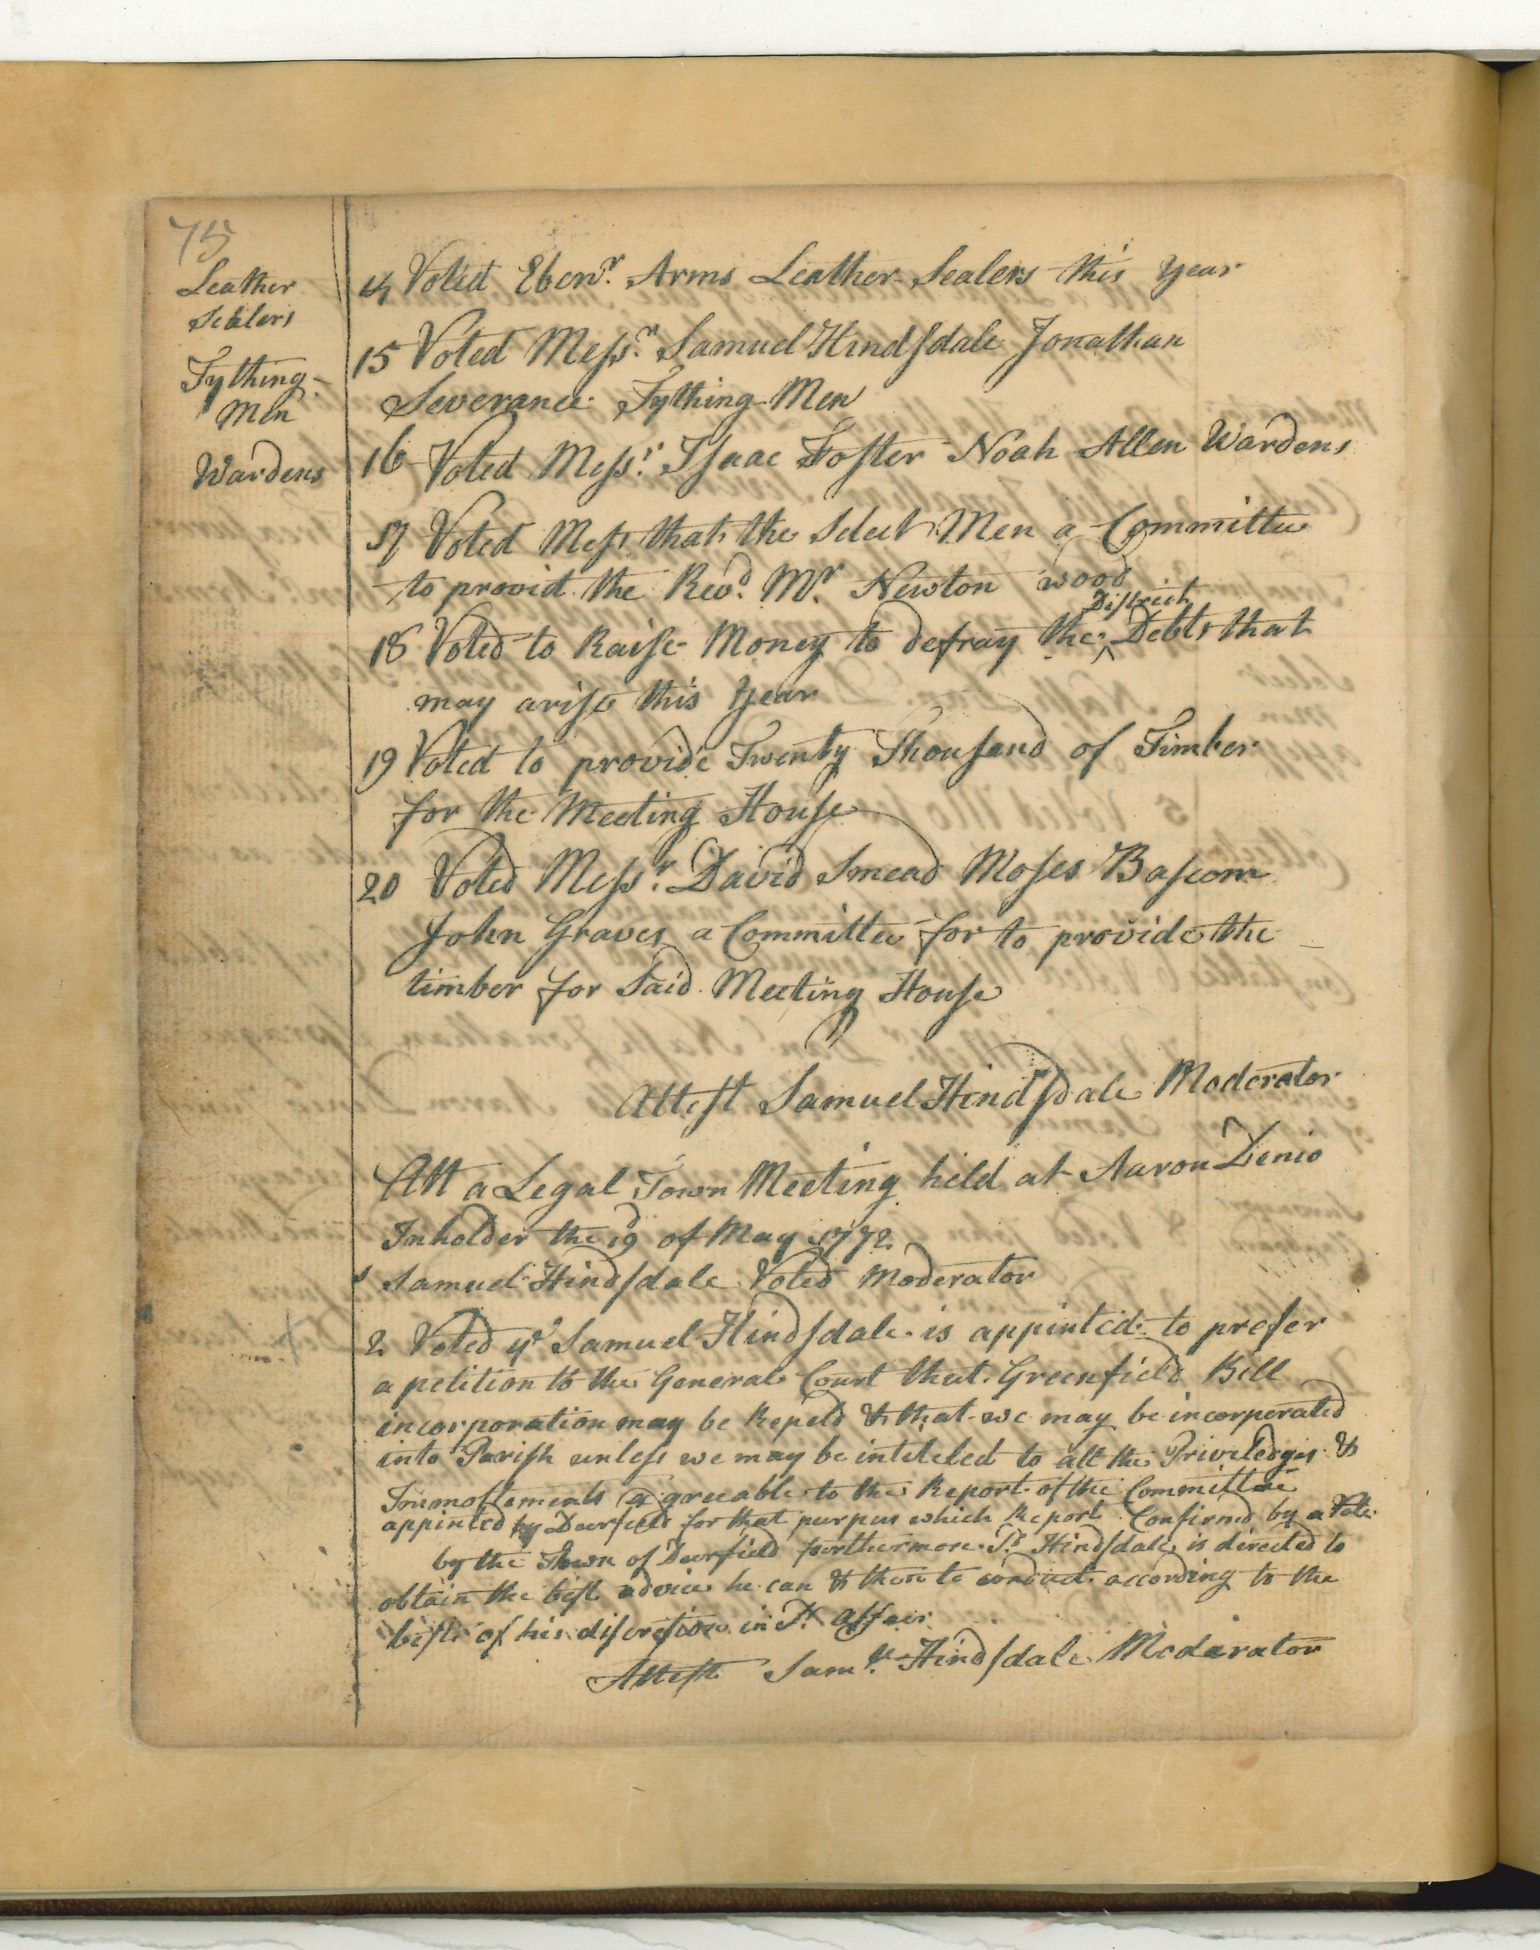 75
Leather
Sealers
14 Voted Ebenr. Arms Leather Sealers this year
15 Voted Messrs. Samuel Hindsdale Jonathan
Severance Tything Men
Tything
Men
16 Voted Messrs. Isaac Foster Noah Allen Wardens
Wardens
17 Voted Mess that the Select Men a Committee
to provid the Revd. Mr. Newton wood
District
18 Voted to Raise Money to defray the ^ Debts that
may arise this Year
19 Voted to provide Twenty Thousand of Timber
for the Meeting House
20 Voted Messrs. David Smead Moses Bascom
John Graves a Committee for to provide the
timber for Said Meeting House
Attest Samuel Hindsdale Moderator
Att a Legal Town Meeting held at Aaron Denio
Inholder the 19 of May 1772
1 Samuel Hindsdale Voted Moderator
2 Voted yt Samuel Hindsdale is appinted to prefer
a petition to the General Court that Greenfield Bill
incorporation may be Repeld & that we may be incorperated
into Parish unless we may be inteteled to all the Priveledges &
agreeable to the Report of the Committee
appinted by Deerfield for that purpus which Report Confirmd by a Vote
by the Town of Deerfield forthermore Sd Hindsdale is directed to
obtain the best advice he can & then to conduct according to the
best of his discretion in Sd affair
Attest Samll. Hindsdale Moderator